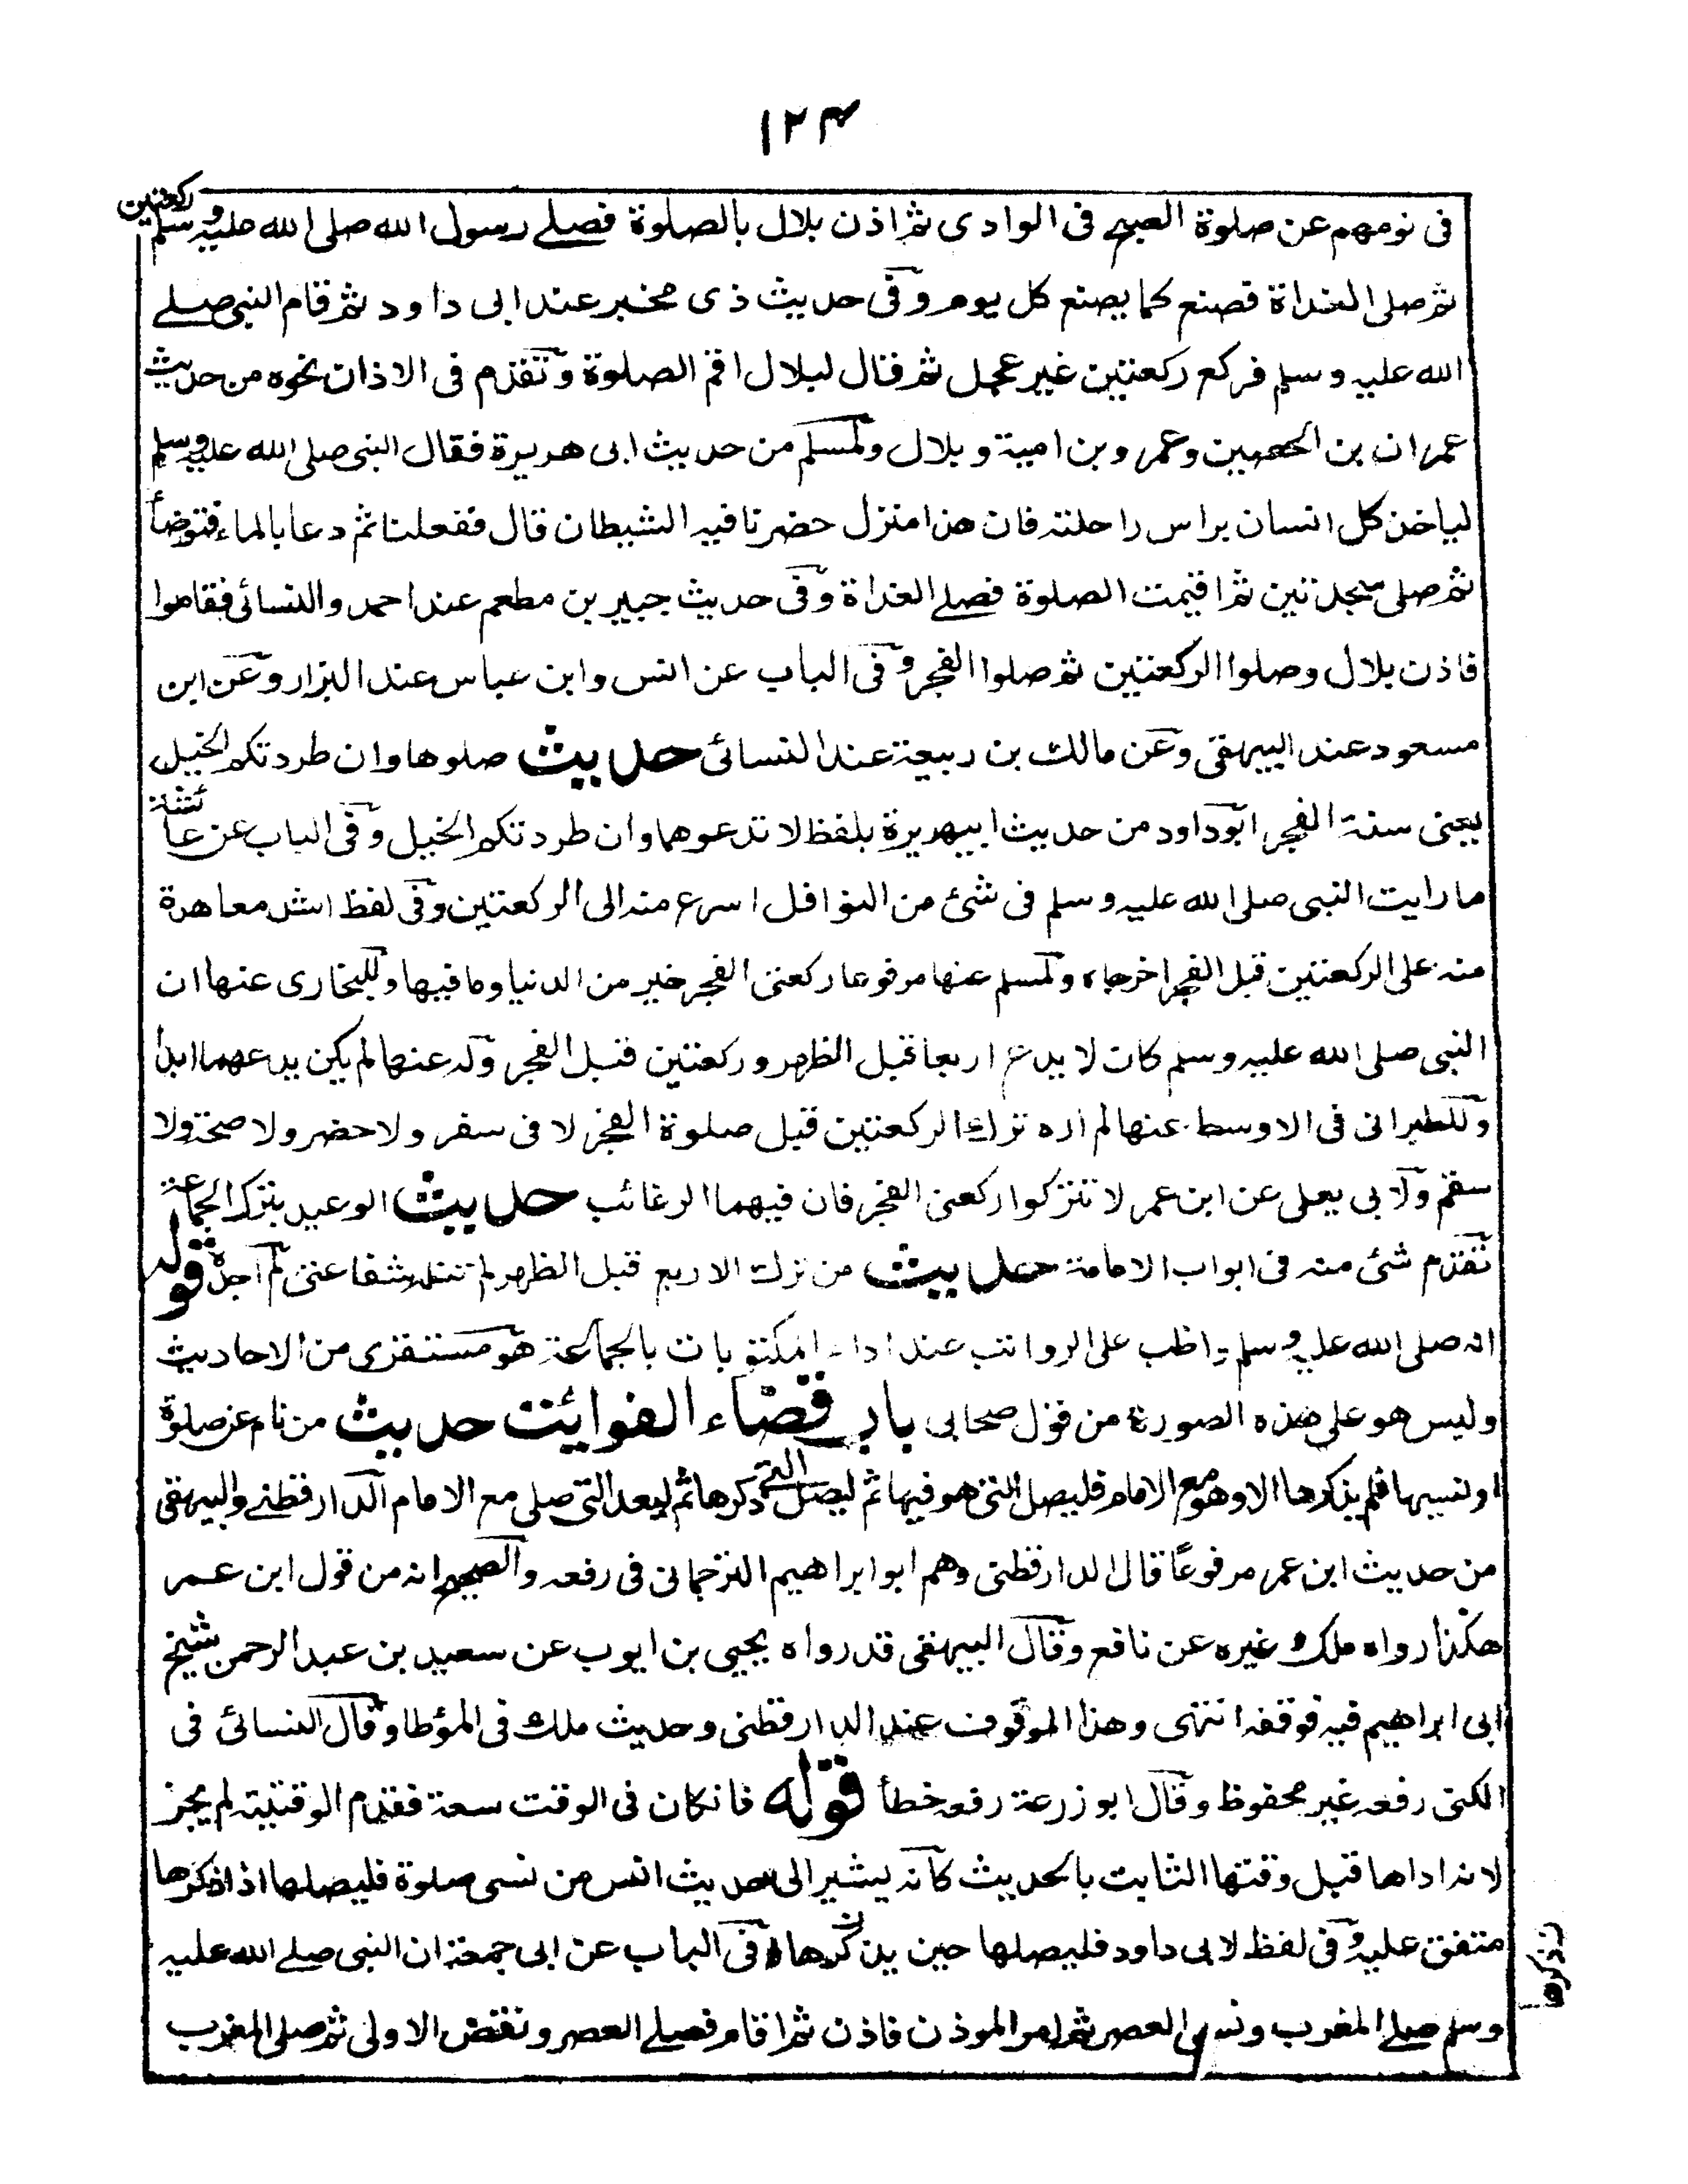 ۱۲۴
فى نومهم عن صلوة الصبح فى الوادى ثم اذن بلال بالصلوة فصلے رسول الله صلى الله عليه وسلم ركعتين
ثم صلى الغداة فصنع كما يصنع كل يوم وفى حديث ذى مخبر عند ابى داود ثم قام النبى صلے
الله عليه وسلم فركع ركعتين غير عجل ثم قال لبلال اقم الصلوة وتقدم فى الاذان نحوه من حديث
عمران بن الحصين وعمرو بن امية وبلال ولمسلم من حديث ابى هريرة فقال النبى صلى الله عليه وسلم
لياخذ كل انسان براس راحلته فان هذا منزل حضرنا فيه الشيطان قال ففعلنا ثم دعا بالماء فتوضأ
ثم صلى سجدتين ثم اقيمت الصلوة فصلے الغداة وفى حديث جبير بن مطعم عند احمد والنسائى فقاموا
فاذن بلال وصلوا الركعتين ثم صلوا الفجر وفى الباب عن انس وابن عباس عند البزار وعن ابن
مسعود عند البيهقى وعن مالك بن ربيعة عند النسائى حديث صلوها وان طردتكم الخيل
يعنى سنة الفجر ابوداود من حديث ابيهريرة بلفظ لا تدعوهما وان طردتكم الخيل وفى الباب عن عائشة
ما رايت النبى صلى الله عليه وسلم فى شئ من النوافل اسرع منه الى الركعتين وفى لفظ اشد معاهدة
منه على الركعتين قبل الفجر اخرجاه ولمسلم عنها مرفوعا ركعتى الفجر خير من الدنيا وما فيها وللبخارى عنها ان
النبى صلى الله عليه وسلم كان لا يدع اربعا قبل الظهر وركعتين قبل الفجر وله عنها لم يكن يدعهما ابدا
وللطبرانى فى الاوسط عنها لم اره ترك الركعتين قبل صلوة الفجر لا فى سفر ولا حضر ولا صحة ولا
سقم ولابى يعلى عن ابن عمر لا تتركوا ركعتى الفجر فان فيهما الرغائب حديث الوعيد بترك الجماعة
تقدم شئ منه فى ابواب الامامة حديث من ترك الاربع قبل الظهر لم تنله شفاعتى لم اجده قوله
انه صلى الله عليه وسلم واظب على الرواتب عند اداء المكتوبات بالجماعة هو مستقرى من الاحاديث
وليس هو على هذه الصورة من قول صحابى باب قضاء الفوائت حديث من نام عن صلوة
او نسيها فلم يذكرها الا وهو مع الامام فليصل التى هو فيها ثم ليصل التى ذكرها ثم ليعد التى صلى مع الامام الدارقطنے والبيهقى
من حديث ابن عمر مرفوعًا قال الدارقطنى وهم ابو ابراهيم الترجمانى فى رفعه والصحيح انه من قول ابن عمر
هكذا رواه ملك وغيره عن نافع وقال البيهقى قد رواه يحيى بن ايوب عن سعيد بن عبد الرحمن شيخ
ابى ابراهيم فيه فوقفه انتهى وهذا الموقوف عند الدارقطنى وحديث ملك فى المؤطا وقال النسائى فى
الكنى رفعه غير محفوظ وقال ابو زرعة رفعه خطأ قوله فان كان فى الوقت سعة فقدم الوقتية لم يجز
لانه اداها قبل وقتها الثابت بالحديث كانه يشير الى حديث انس من نسى صلوة فليصلها اذا ذكرها
متفق عليه وفى لفظ لابى داود فليصلها حين يذكرها وفى الباب عن ابى جمعة ان النبى صلے الله عليه
وسلم صلے المغرب ونسى العصر ثم امر الموذن فاذن ثم اقام فصلے العصر ونقض الاولى ثم صلى المغرب